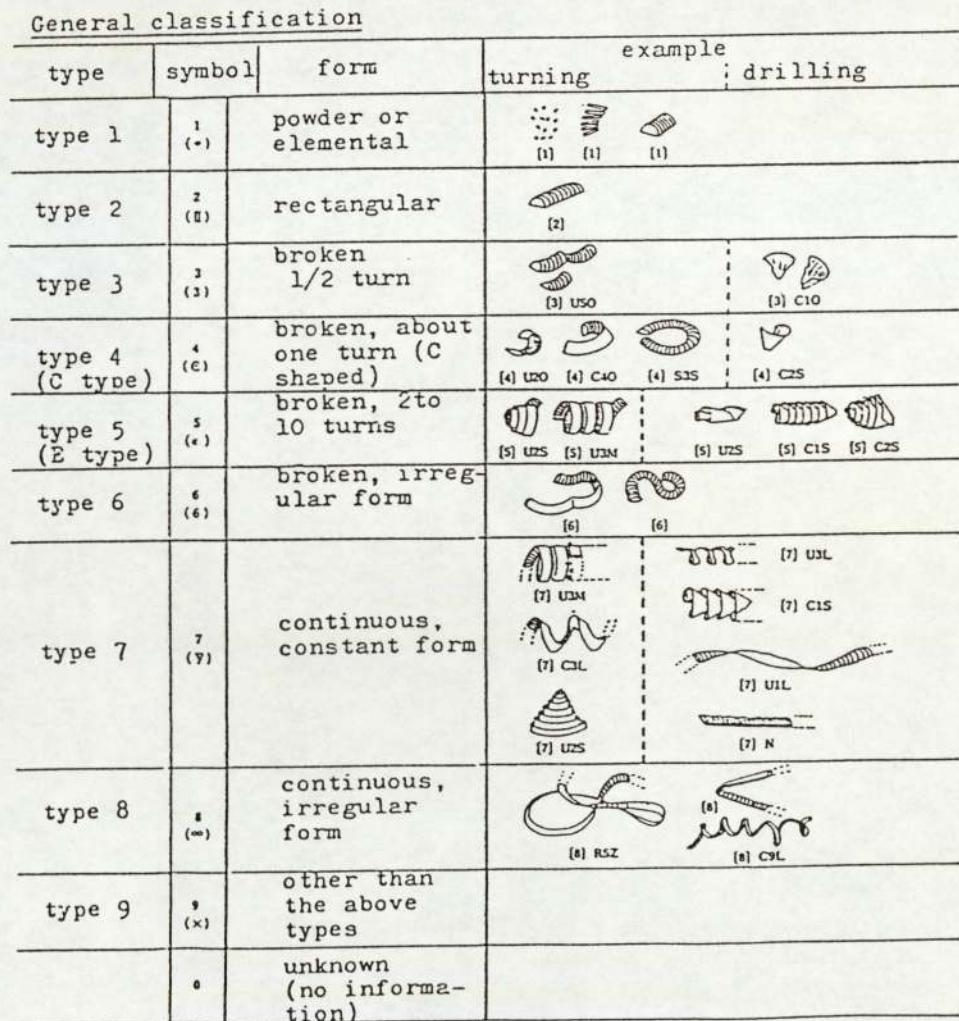 General classification
example
type symbol form turning drilling
type 1 1 (•) powder or elemental
[1] [1] [1]
type 2 2 (▯) rectangular
[2]
type 3 3 (3) broken 1/2 turn
[3] USO [3] C1O
type 4 (C type) 4 (C) broken, about one turn (C shaped)
[4] U2O [4] C4O [4] S3S [4] C2S
type 5 (E type) 5 (ε) broken, 2to 10 turns
[5] U2S [5] U3M [5] U2S [5] C1S [5] C2S
type 6 6 (6) broken, irreg-ular form
[6] [6]
type 7 7 continuous, constant form
[7] U3M [7] U3L
[7] C1S
[7] C3L
[7] U1L
[7] U2S [7] N
type 8 8 (∞) continuous, irregular form
[8]
[8] RSZ [8] C9L
type 9 9 (×) other than the above types
0 unknown (no informa-tion)